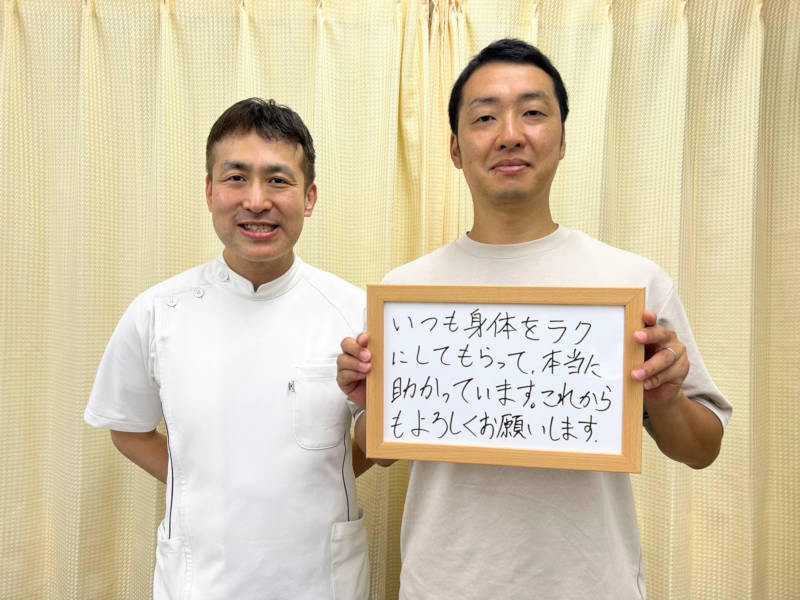 いつも身体をラク
にしてもらって、本当に
助かっています。これから
もよろしくお願いします.